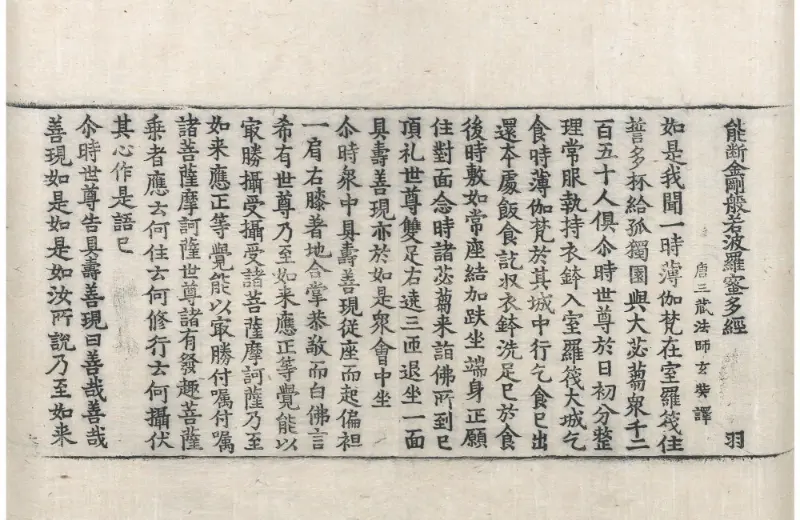 能断金剛般若波羅蜜多經　羽
唐三藏法師玄奘譯
如是我聞一時薄伽梵在室羅筏住
誓多林給孤獨園與大苾蒭衆千二
百五十人俱尒時世尊於日初分整
理常服執持衣鉢入室羅筏大城乞
食時薄伽梵於其城中行乞食已出
還本處飯食訖収衣鉢洗足已於食
後時敷如常座結加趺坐端身正願
住對面念時諸苾蒭来詣佛所到已
頂礼世尊雙足右遶三匝退坐一面
具壽善現亦於如是衆會中坐
尒時衆中具壽善現從座而起偏袒
一肩右膝著地合掌恭敬而白佛言
希有世尊乃至如来應正等覺能以
㝡勝攝受攝受諸菩薩摩訶薩乃至
如来應正等覺能以㝡勝付嘱付嘱
諸菩薩摩訶薩世尊諸有發趣菩薩
乗者應云何住云何修行云何攝伏
其心作是語已
尒時世尊告具壽善現曰善哉善哉
善現如是如是如汝所說乃至如来